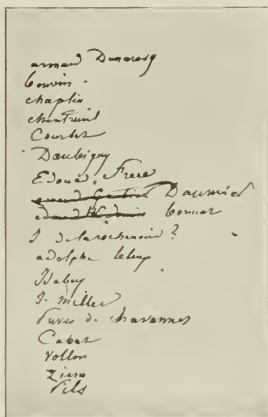 armand Dumaresq
bonvin
chaplin
chintreuil
Courbet
Daubigny
Edouard Frere
Daumier
bonnat
J delarochenoire ?
adolphe leleux
Isabey
J. Millet
Puvis de chavannes
Cabat
Vollon
Ziem
Pils